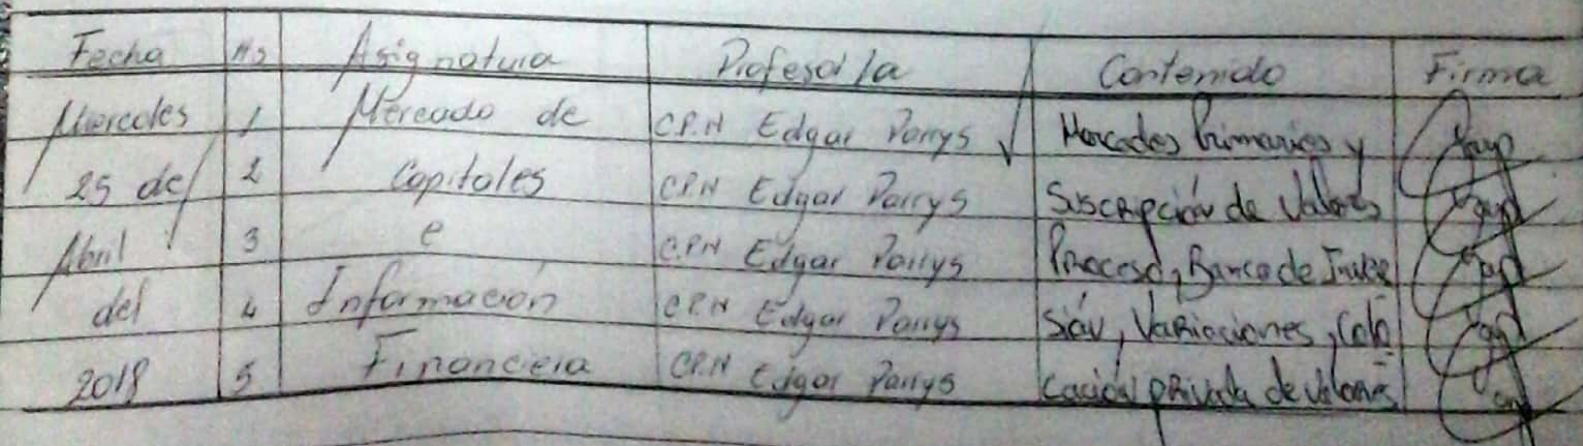 Fecha Hs Asignatura Profesor/a Contenido Firma
Miercoles 1 Mercado de C.P.N Edgar Parrys Mercados Primarios y
25 de 2 Capitales C.P.N Edgar Parrys Suscripción de Valores
Abril 3 e C.P.N Edgar Parrys Proceso, Banco de Inver
del 4 Información C.P.N Edgar Parrys sión, Variaciones, Colo
2018 5 Financiera C.P.N Edgar Parrys cación privada de valores